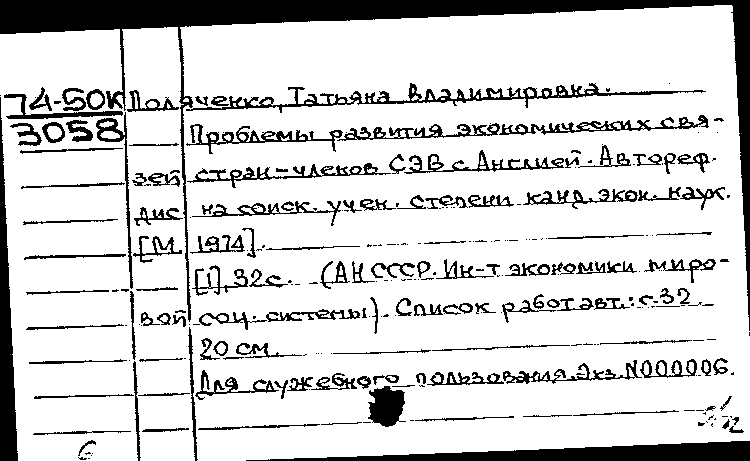 74-50к Поляченко, Татьяна Владимировна.
3058 Проблемы развития экономических свя-
зей стран-членов СЭВ с Англией. Автореф.
дис на соиск. учен. степени канд. экон. наук.
[М 1974].
[1], 32с. (АН СССР. Ин-т экономики миро-
вой соц. системы). Список работ авт.: с.32.
20 см.
Для служебного пользования. Экз. N000006.
6